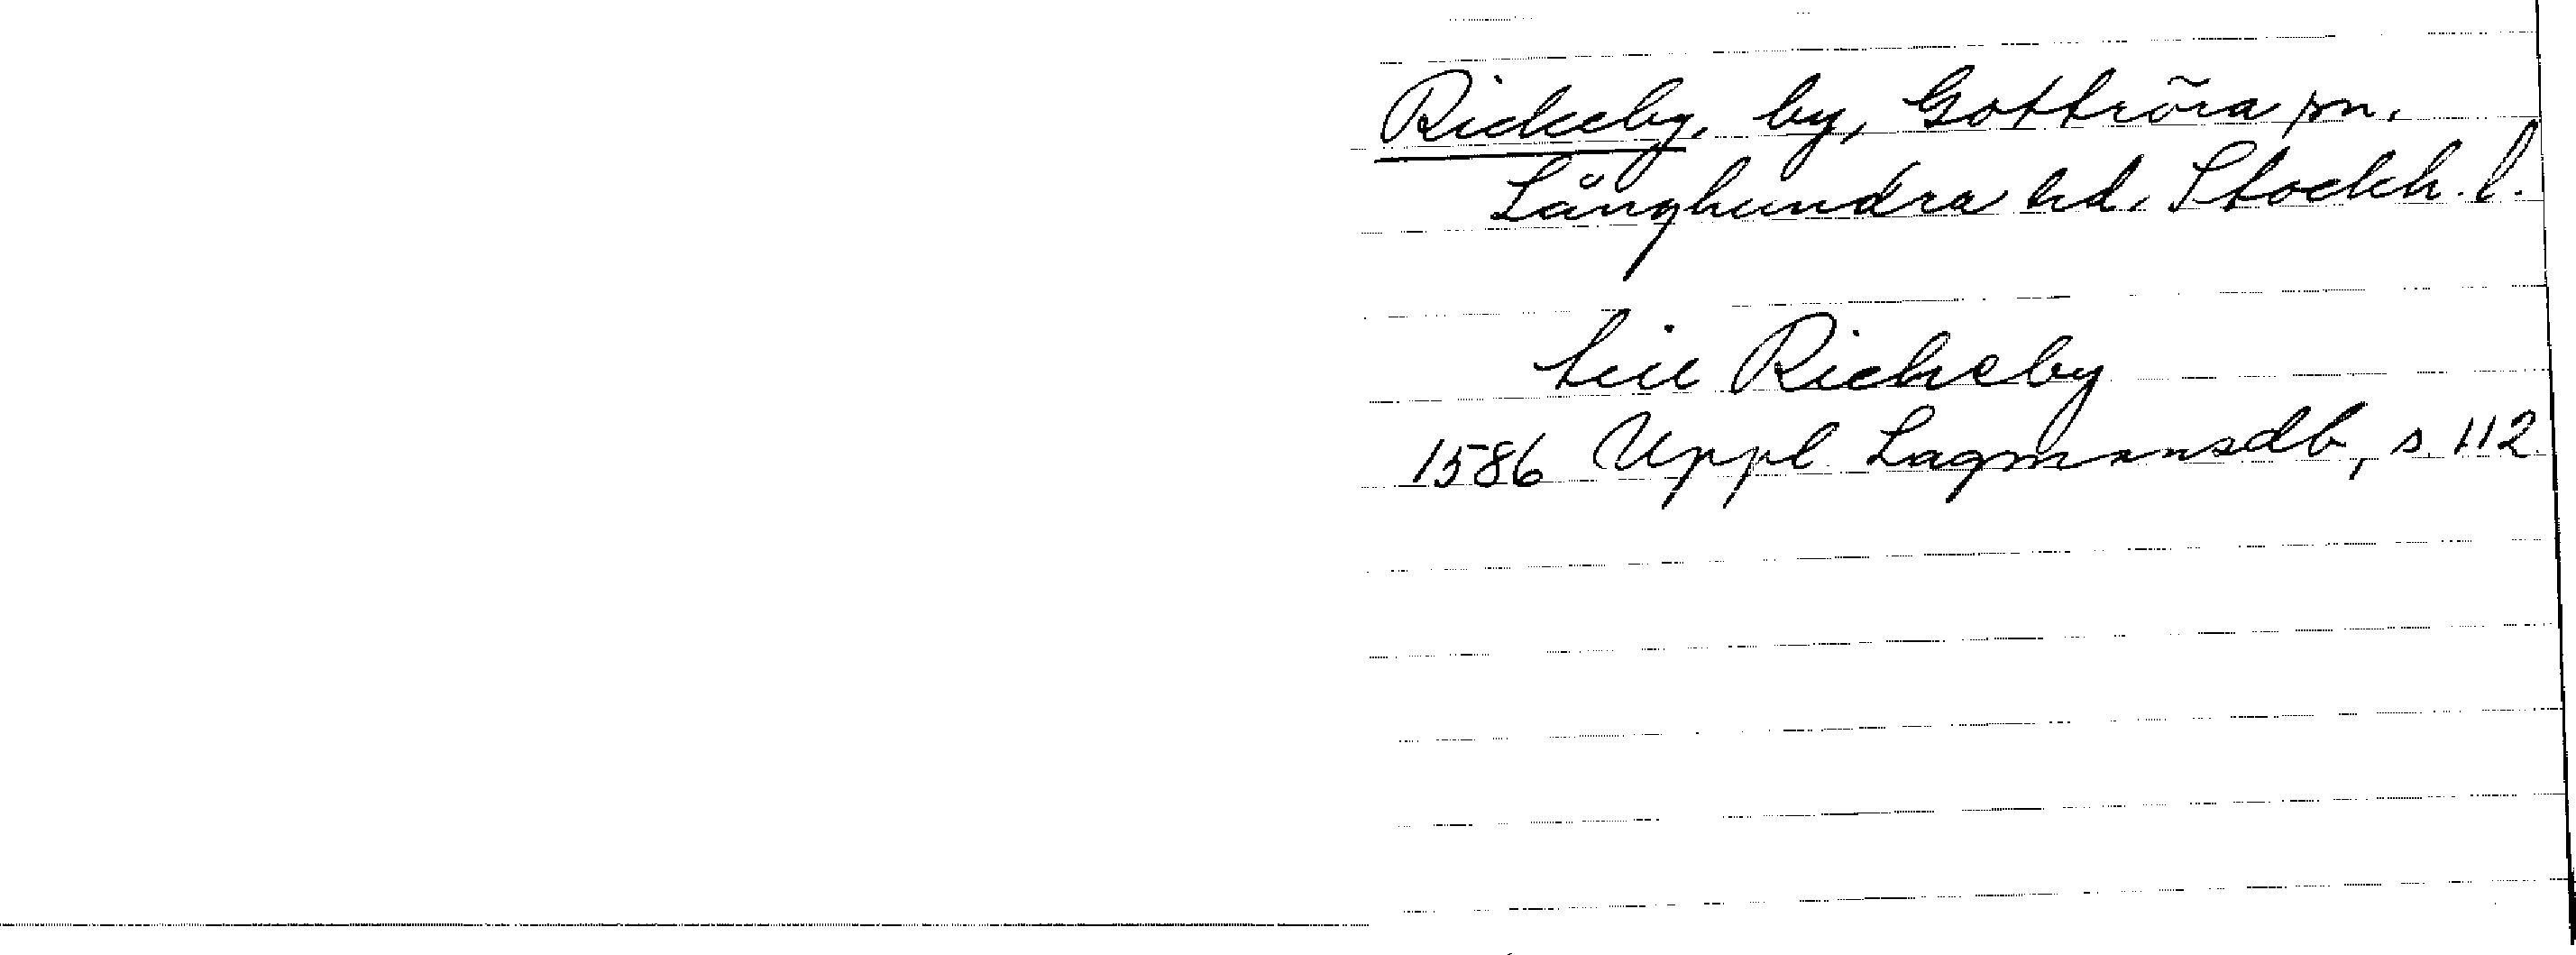 Rickeby, by, Gottröra sn.
Långhundra hd, Stockh. l.
till Rickeby
1586 Uppl Lagmansdb, s. 112